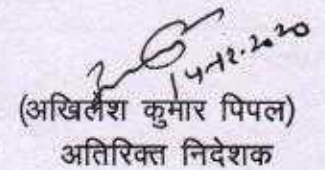 14.12.2020
(अखिलेश कुमार पिपल)
अतिरिक्त निदेशक